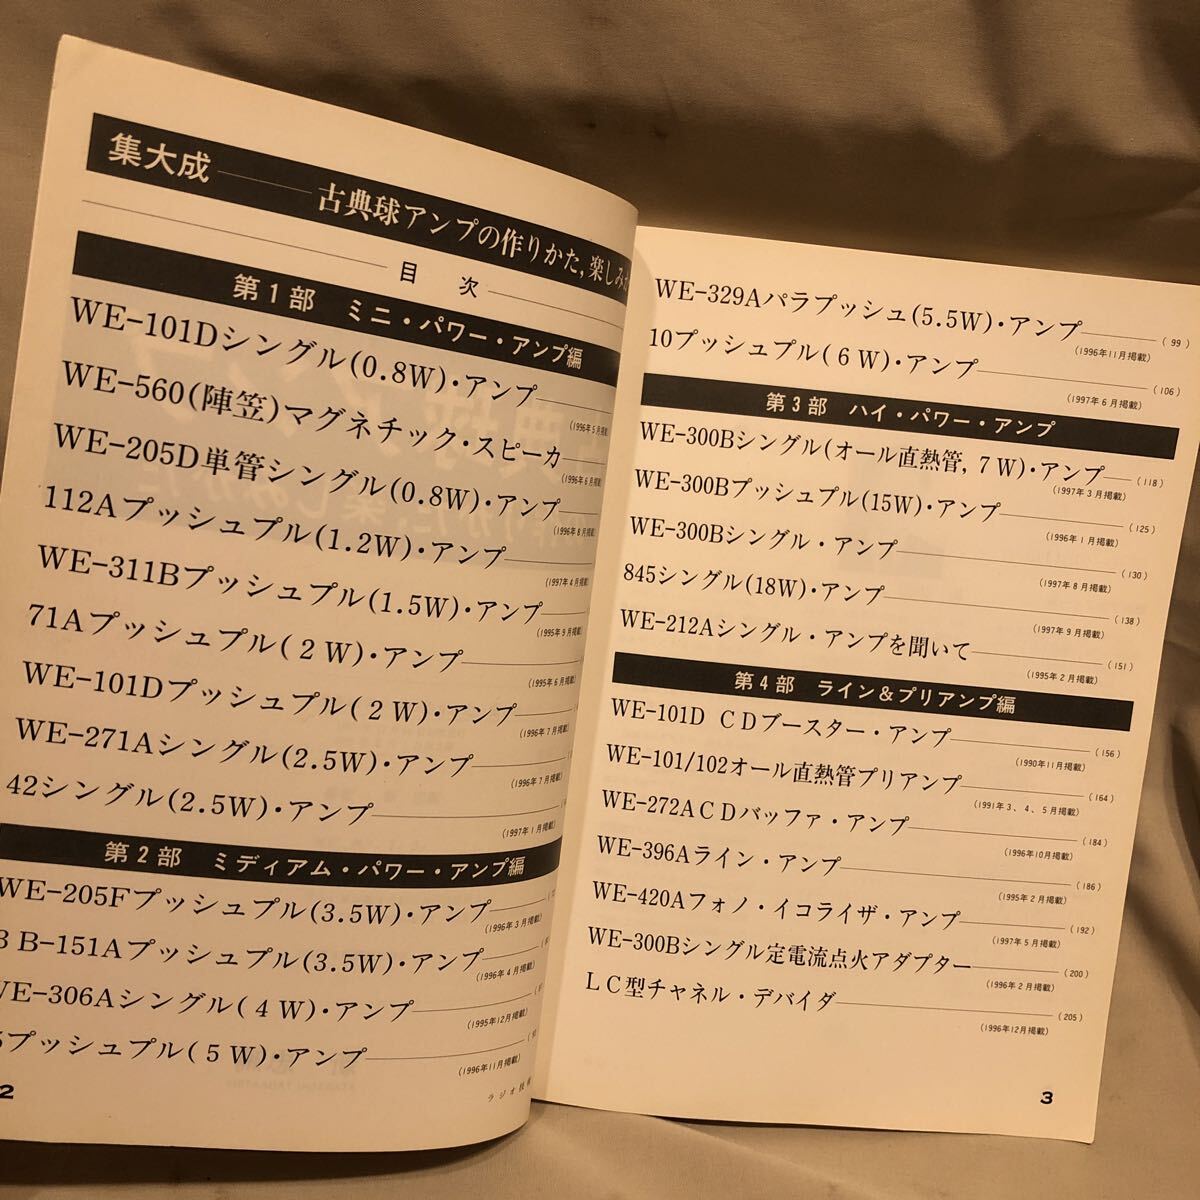 集大成――古典球アンプの作りかた，楽しみ
目 次
第1部 ミニ・パワー・アンプ編
WE-101Dシングル(0.8W)・アンプ
(1996年5月掲載
WE-560(陣笠)マグネチック・スピーカ
(1996年6月掲載
WE-205D単管シングル(0.8W)・アンプ
(1996年8月掲載
112Aプッシュプル(1.2W)・アンプ
(1997年4月掲載
WE-311Bプッシュプル(1.5W)・アンプ
(1995年9月掲載
71Aプッシュプル(2W)・アンプ
(1995年6月掲載
WE-101Dプッシュプル(2W)・アンプ
(1996年7月掲載
WE-271Aシングル(2.5W)・アンプ
(1996年7月掲載
42シングル(2.5W)・アンプ
(1997年1月掲載)
第2部 ミディアム・パワー・アンプ編
WE-205Fプッシュプル(3.5W)・アンプ
(1996年3月掲載)
B-151Aプッシュプル(3.5W)・アンプ
(1996年4月掲載)
WE-306Aシングル(4W)・アンプ
(1995年12月掲載)
プッシュプル(5W)・アンプ
(1996年11月掲載)
2
ラジオ技
WE-329Aパラプッシュ(5.5W)・アンプ (99)
(1996年11月掲載)
10プッシュプル(6W)・アンプ (106)
(1997年6月掲載)
第3部 ハイ・パワー・アンプ
WE-300Bシングル(オール直熱管，7W)・アンプ (118)
(1997年3月掲載)
WE-300Bプッシュプル(15W)・アンプ (125)
(1996年1月掲載)
WE-300Bシングル・アンプ (130)
(1997年8月掲載)
845シングル(18W)・アンプ (138)
(1997年9月掲載)
WE-212Aシングル・アンプを聞いて (151)
(1995年2月掲載)
第4部 ライン＆プリアンプ編
WE-101D CDブースター・アンプ (156)
(1990年11月掲載)
WE-101/102オール直熱管プリアンプ (164)
(1991年3、4、5月掲載)
WE-272ACDバッファ・アンプ (184)
(1996年10月掲載)
WE-396Aライン・アンプ (186)
(1995年2月掲載)
WE-420Aフォノ・イコライザ・アンプ (192)
(1997年5月掲載)
WE-300Bシングル定電流点火アダプター (200)
(1996年2月掲載)
LC型チャネル・デバイダ (205)
(1996年12月掲載)
3